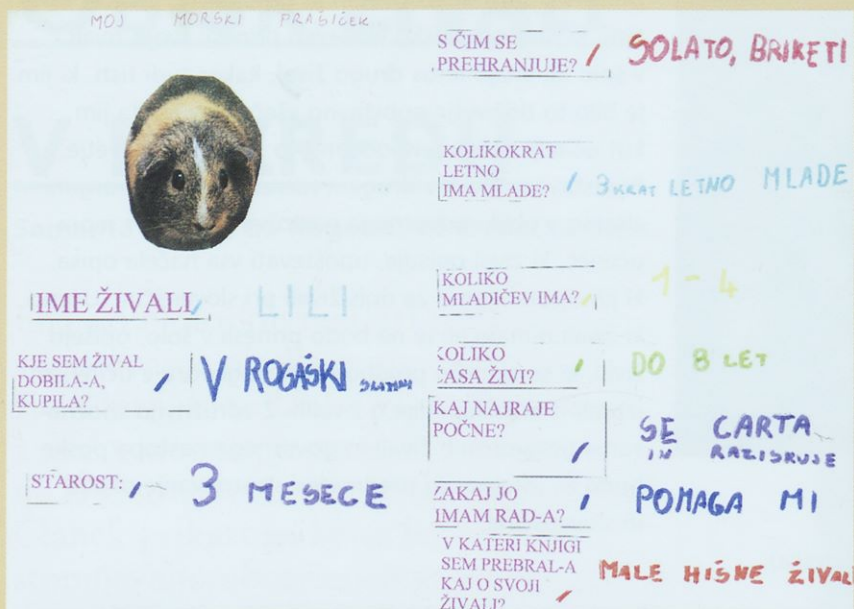 MOJ MORSKI PRAŠIČEK
IME ŽIVALI,
LILI
KJE SEM ŽIVAL
DOBILA-A,
KUPILA?
V ROGAŠKI SLATINI
STAROST:
3 MESECE
S ČIM SE
PREHRANJUJE?
SOLATO, BRIKETI
KOLIKOKRAT
LETNO
IMA MLADE?
3 KRAT LETNO MLADE
KOLIKO
MLADIČEV IMA?
1-4
KOLIKO
ČASA ŽIVI?
DO 8 LET
KAJ NAJRAJE
POČNE?
SE CARTA
IN RAZISKUJE
ZAKAJ JO
IMAM RAD-A?
POMAGA MI
V KATERI KNJIGI
SEM PREBRAL-A
KAJ O SVOJI
ŽIVALI?
MALE HIŠNE ŽIVALI